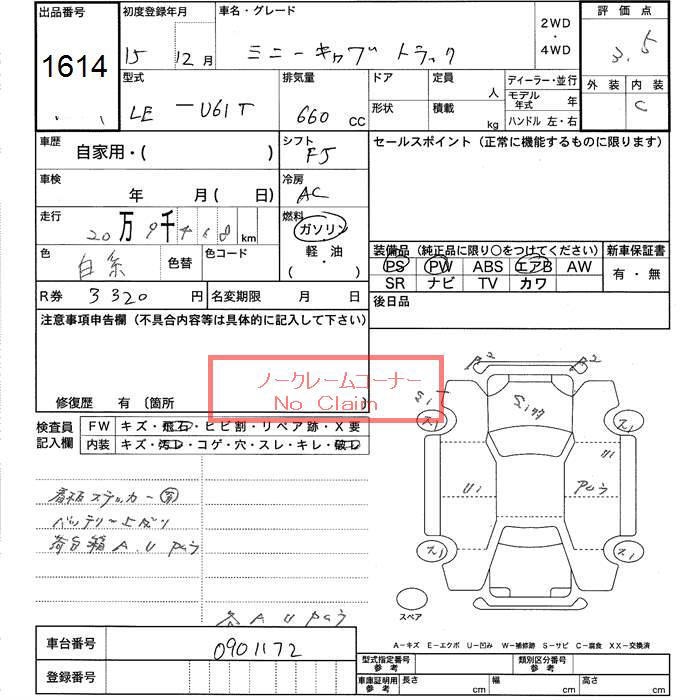 出品番号
1614
初度登録年月
15 12月
車名・グレード
ミニーキャブ トラック
2WD
・
4WD
評価点
3.5
外装 内装
C
型式
LE－U61T
排気量
660 CC
ドア
形状
定員 人
積載 kg
ディーラー・並行
モデル年式 年
ハンドル 左・右
車歴
自家用・( )
シフト
F5
セールスポイント (正常に機能するものに限ります)
車検
年 月( 日)
冷房
AC
走行
20万9千468km
燃料
ガソリン
軽・油
( ・ )
色
白系
色替
色コード
装備品 (純正品に限り○をつけてください)
PS PW ABS エアB AW
SR ナビ TV カワ
新車保証書
有・無
R券 3320円
名変期限 月 日
後日品
注意事項申告欄 (不具合内容等は具体的に記入して下さい)
ノークレームコーナー
No Claim
修復歴 有 〔箇所
検査員
記入欄
FW キズ・飛石・ヒビ割・リペア跡・X要
内装 キズ・汚コレ・コゲ・穴・スレ・キレ・破コレ
看板ステッカー
バッテリー上がり
荷台箱 A.U Pウラ
A U Pウラ
スペア
A－キズ E－エクボ U－凹み W－補修跡 S－サビ C－腐食 XX－交換済
車台番号 0901172
登録番号
型式指定番号
参考
類別区分番号
参考
車庫証明用
参考
長さ cm 幅 cm 高さ cm